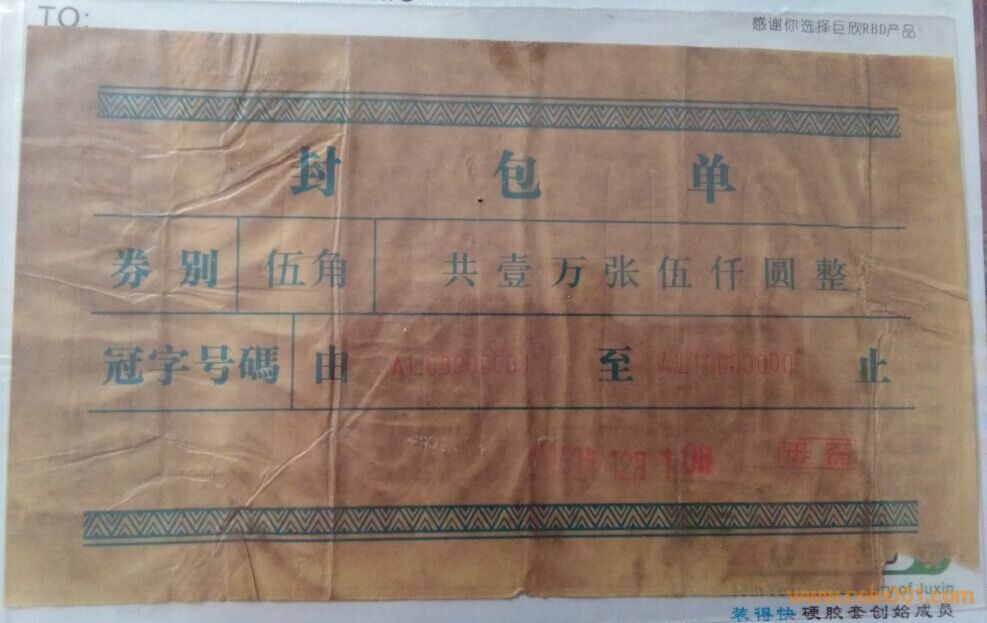 TO:
感谢你选择巨欣RBD产品
封包单
券别 伍角 共壹万张伍仟圆整
冠字号碼 由 至 止
12月1
ry of Juxin
www.coin001.com
装得快 硬胶套创始成员